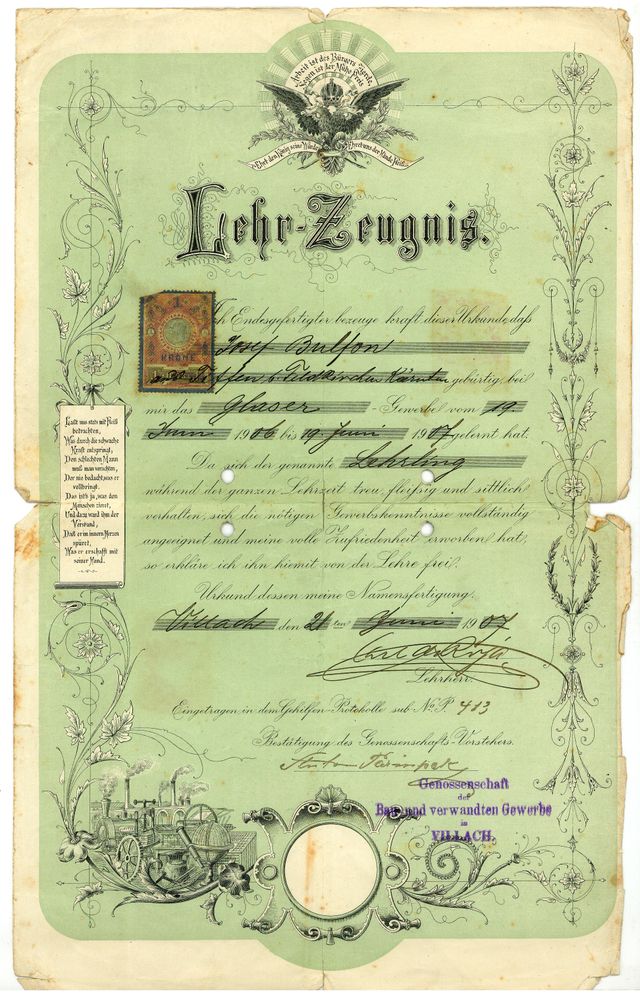 Arbeit ist des Bürgers Zierde,
Segen ist der Mühe Preis
Ehrt den König seine Würde, Ehret uns der Hände Fleiß
Lehr-Zeugnis.
1
KRONE
Ich Endesgefertigter bezeuge kraft dieser Urkunde, daß
Josef Bulfon
Treffen b. Feldkirchen Kärnten gebürtig, bei
mir das Glaser - Gewerbe vom 19.
Juni 1906 bis 19 Juni 1907 gelernt hat.
Da sich der genannte Lehrling
während der ganzen Lehrzeit treu, fleißig und sittlich
verhalten, sich die nötigen Gewerbskenntnisse vollständig
angeeignet und meine volle Zufriedenheit erworben hat,
so erkläre ich ihn hiemit von der Lehre frei.
Urkund dessen meine Namensfertigung.
Villach den 21ten Juni 1907
Lehrherr.
Eingetragen in dem Gehilfen-Protokolle sub No. P. 413
Bestätigung des Genossenschafts-Vorstehers.
Anton
Genossenschaft
der
Bau- und verwandten Gewerbe
in
VILLACH.
Laßt uns stets mit Fleiß
betrachten,
Was durch die schwache
Kraft entspringt,
Den schlechten Mann
muß man verachten,
Der nie bedacht, was er
vollbringt.
Das ist's ja, was den
Menschen zieret,
Und dazu ward ihm der
Verstand,
Daß er im innern Herzen
spüret,
Was er erschafft mit
seiner Hand.